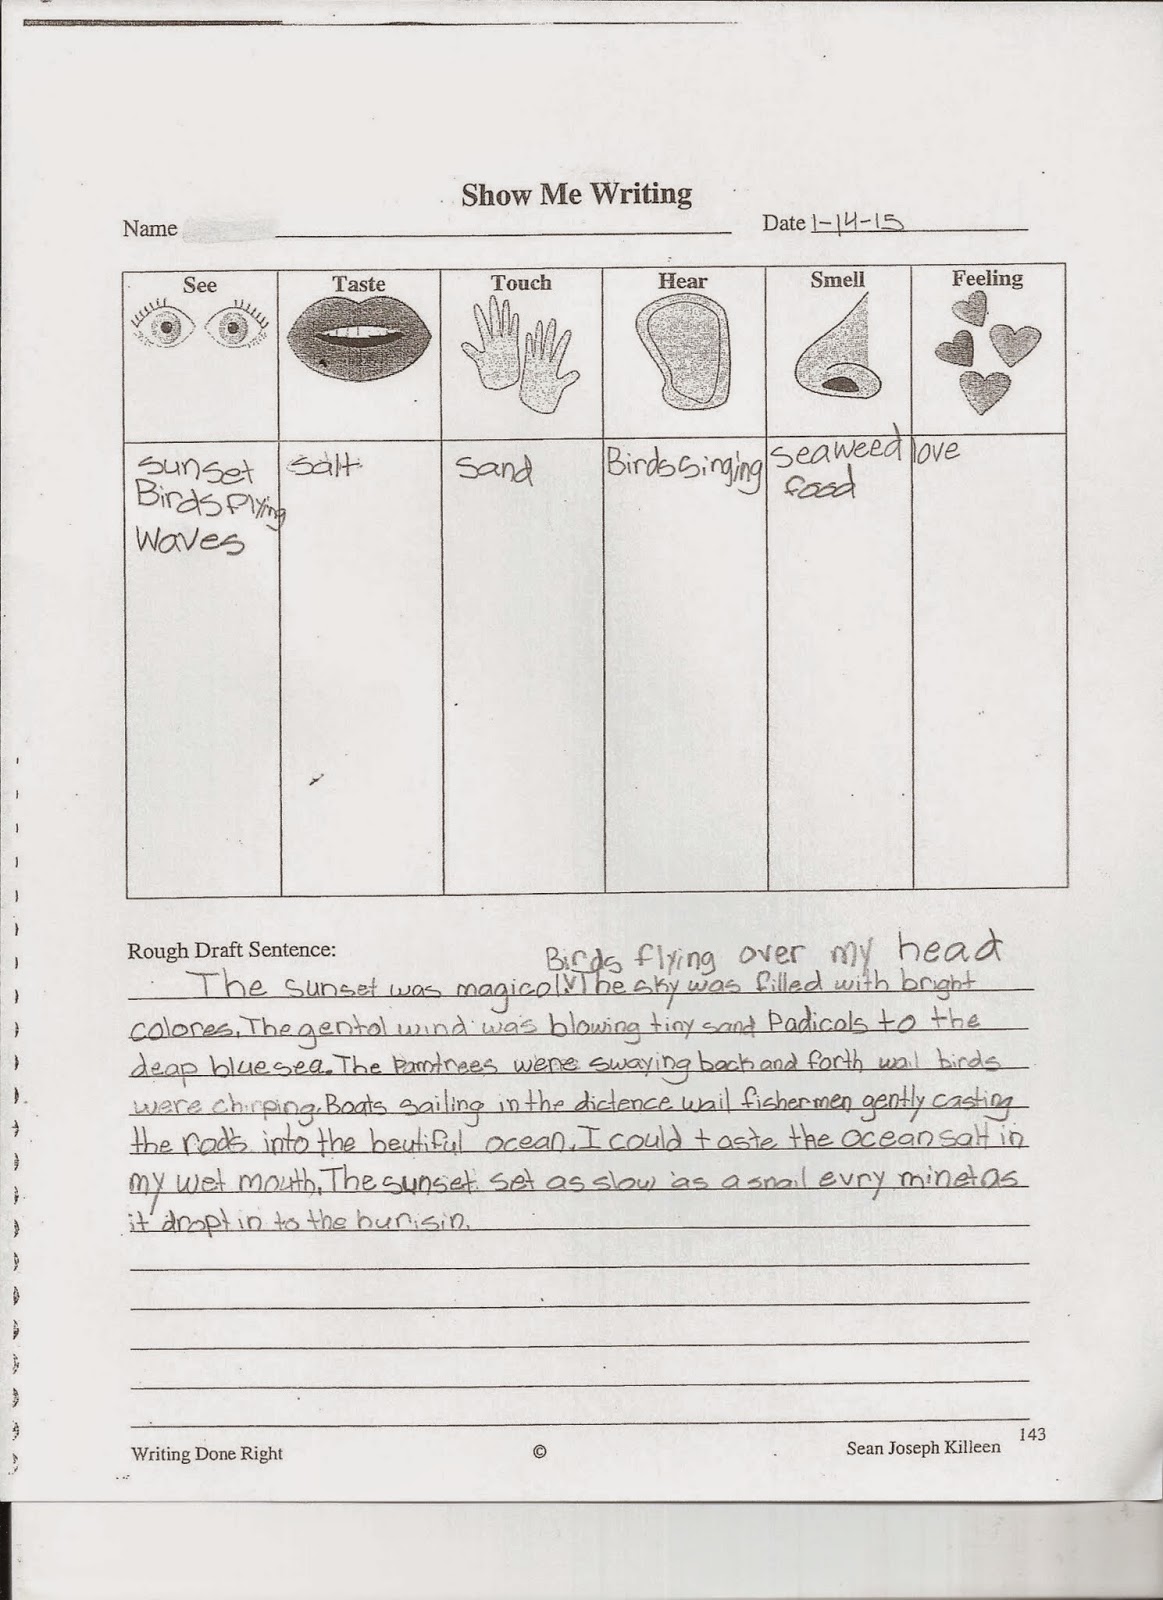 Show Me Writing
Name Date 1-14-15
See Taste Touch Hear Smell Feeling
sunset salt sand Birds singing seaweed love
Birds flying food
Waves
Rough Draft Sentence: Birds flying over my head
The sunset was magicol. The sky was filled with bright
colores. The gentol wind was blowing tiny sand Padicols to the
deap blue sea. The Pamtrees were swaying back and forth wail birds
were chirping. Boats sailing in the dictence wail fishermen gently casting
the rods into the beutiful ocean. I could taste the ocean salt in
my wet mouth. The sunset set as slow as a snail evry minet as
it dropt in to the hurisin.
143
Writing Done Right © Sean Joseph Killeen